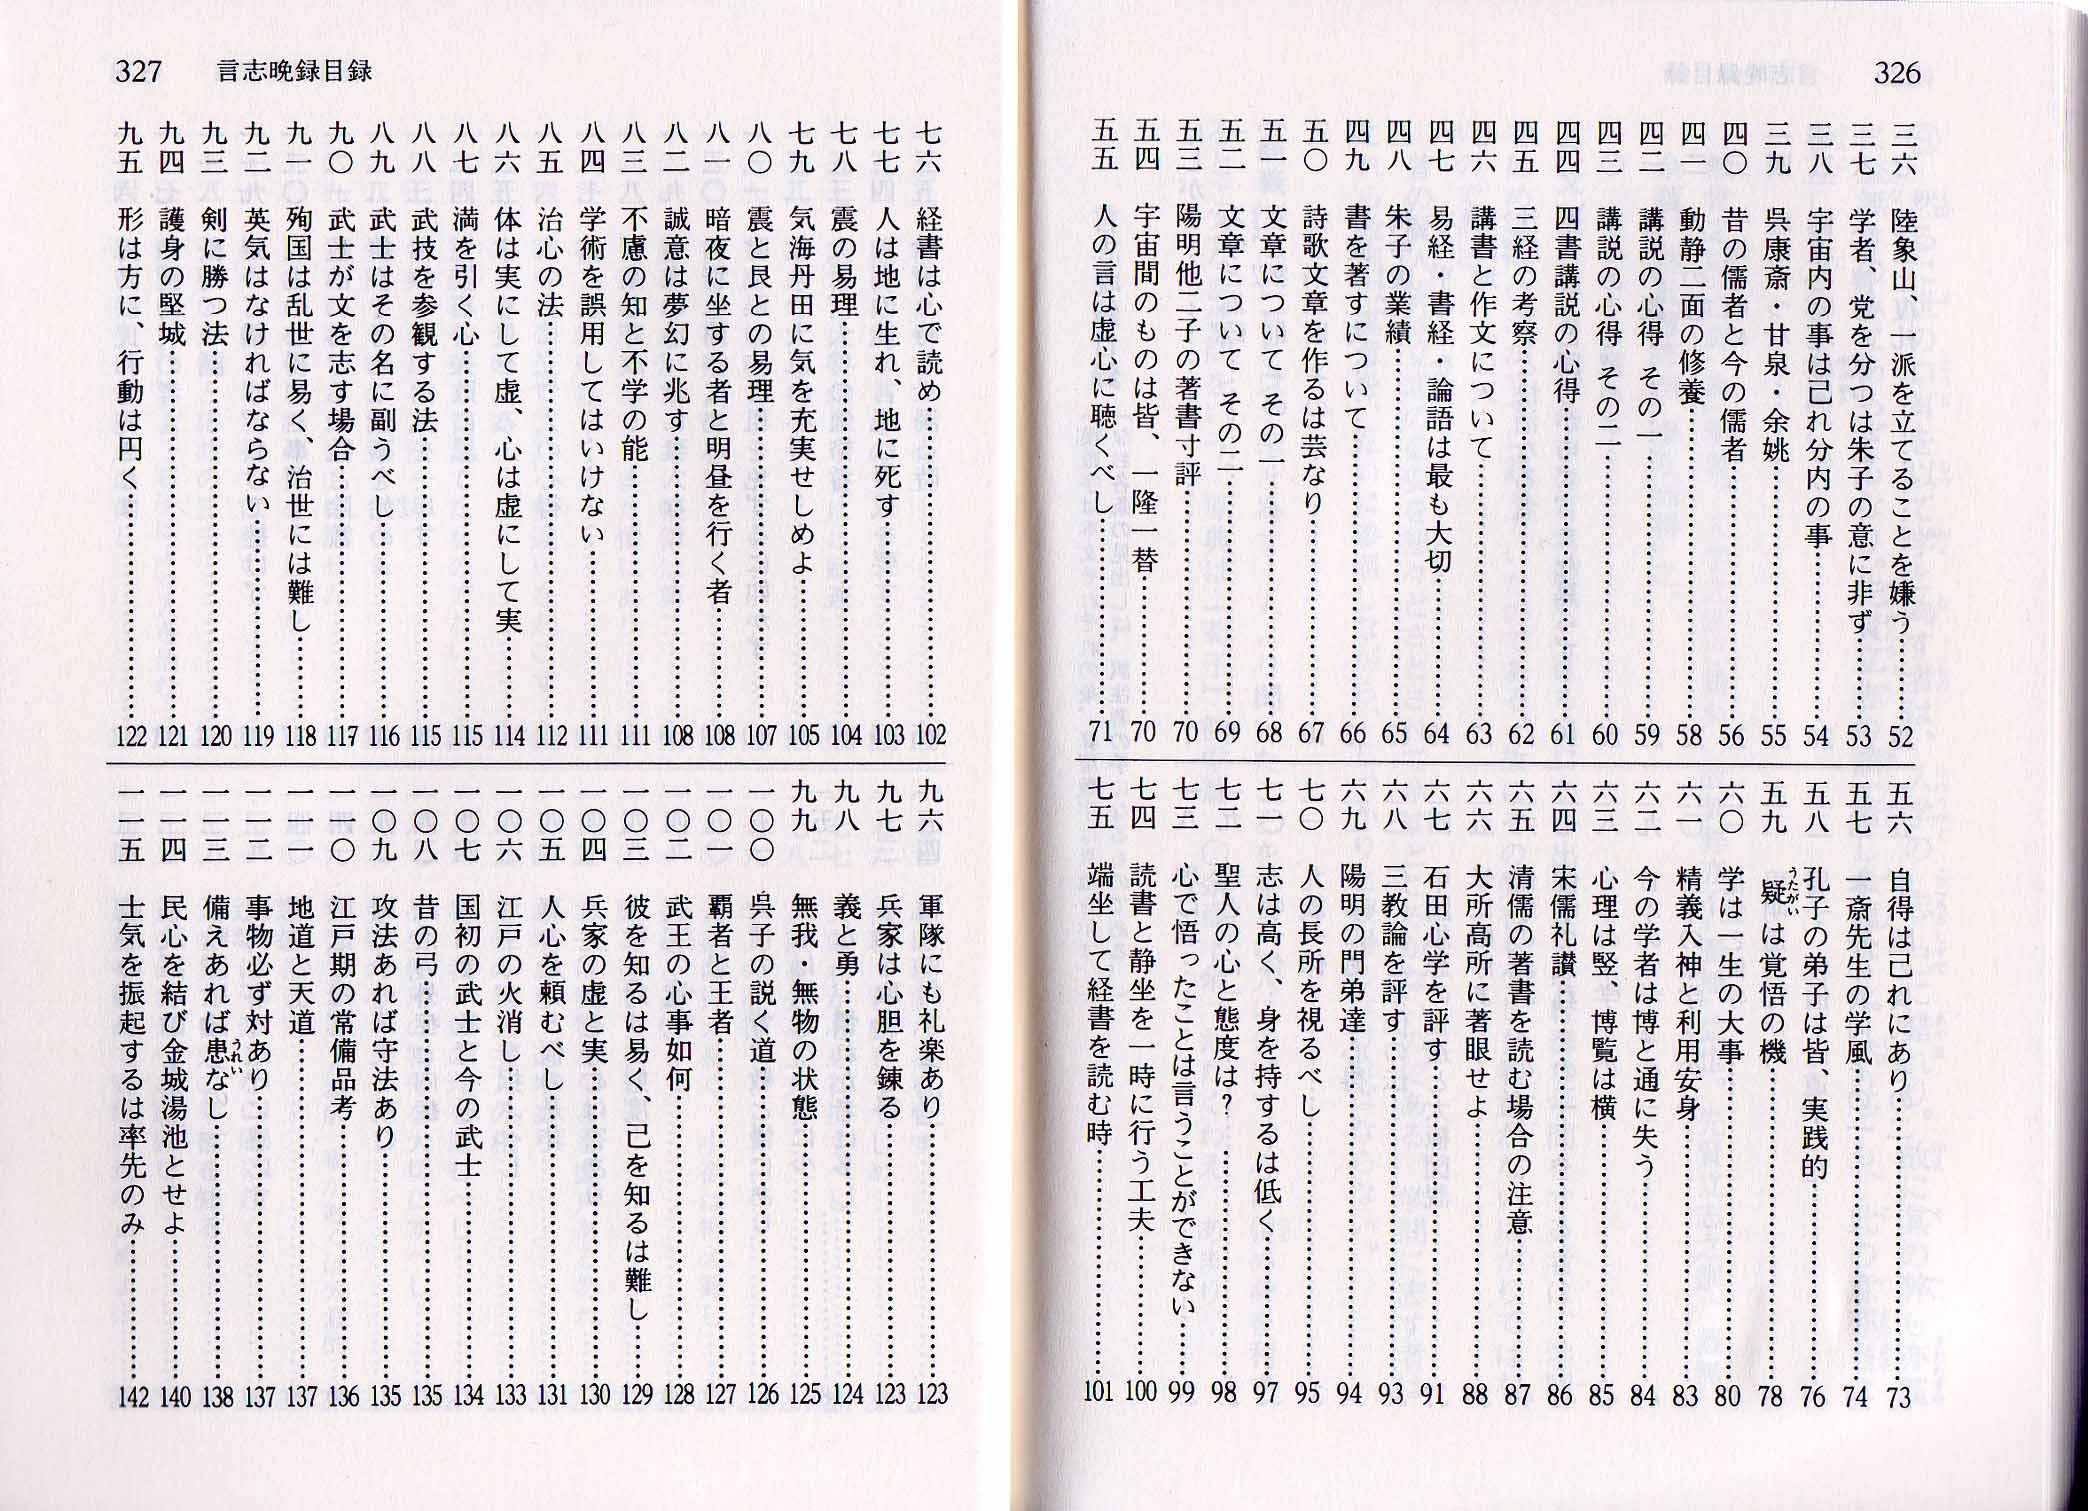 326
三六 陸象山、一派を立てることを嫌う……52
三七 学者、党を分つは朱子の意に非ず……53
三八 宇宙内の事は己れ分内の事……54
三九 呉康斎・甘泉・余姚……55
四〇 昔の儒者と今の儒者……56
四一 動静二面の修養……58
四二 講説の心得 その一……59
四三 講説の心得 その二……60
四四 四書講説の心得……61
四五 三経の考察……62
四六 講書と作文について……63
四七 易経・書経・論語は最も大切……64
四八 朱子の業績……65
四九 書を著すについて……66
五〇 詩歌文章を作るは芸なり……67
五一 文章について その一……68
五二 文章について その二……69
五三 陽明他二子の著書寸評……70
五四 宇宙間のものは皆、一隆一替……70
五五 人の言は虚心に聴くべし……71
五六 自得は己れにあり……73
五七 一斎先生の学風……74
五八 孔子の弟子は皆、実践的……76
五九 疑うたがいは覚悟の機……78
六〇 学は一生の大事……80
六一 精義入神と利用安身……83
六二 今の学者は博と通に失う……84
六三 心理は竪、博覧は横……85
六四 宋儒礼讃……86
六五 清儒の著書を読む場合の注意……87
六六 大所高所に著眼せよ……88
六七 石田心学を評す……91
六八 三教論を評す……93
六九 陽明の門弟達……94
七〇 人の長所を視るべし……95
七一 志は高く、身を持するは低く……97
七二 聖人の心と態度は?……98
七三 心で悟ったことは言うことができない……99
七四 読書と静坐を一時に行う工夫……100
七五 端坐して経書を読む時……101
327 言志晩録目録
七六 経書は心で読め……102
七七 人は地に生れ、地に死す……103
七八 震の易理……104
七九 気海丹田に気を充実せしめよ……105
八〇 震と艮との易理……107
八一 暗夜に坐する者と明昼を行く者……108
八二 誠意は夢幻に兆す……108
八三 不慮の知と不学の能……111
八四 学術を誤用してはいけない……111
八五 治心の法……112
八六 体は実にして虚、心は虚にして実……114
八七 満を引く心……115
八八 武技を参観する法……115
八九 武士はその名に副うべし……116
九〇 武士が文を志す場合……117
九一 殉国は乱世に易く、治世には難し……118
九二 英気はなければならない……119
九三 剣に勝つ法……120
九四 護身の堅城……121
九五 形は方に、行動は円く……122
九六 軍隊にも礼楽あり……123
九七 兵家は心胆を錬る……123
九八 義と勇……124
九九 無我・無物の状態……125
一〇〇 呉子の説く道……126
一〇一 覇者と王者……127
一〇二 武王の心事如何……128
一〇三 彼を知るは易く、己を知るは難し……129
一〇四 兵家の虚と実……130
一〇五 人心を頼むべし……131
一〇六 江戸の火消し……133
一〇七 国初の武士と今の武士……134
一〇八 昔の弓……135
一〇九 攻法あれば守法あり……135
一一〇 江戸期の常備品考……136
一一一 地道と天道……137
一一二 事物必ず対あり……137
一一三 備えあれば患うれいなし……138
一一四 民心を結び金城湯池とせよ……140
一一五 士気を振起するは率先のみ……142